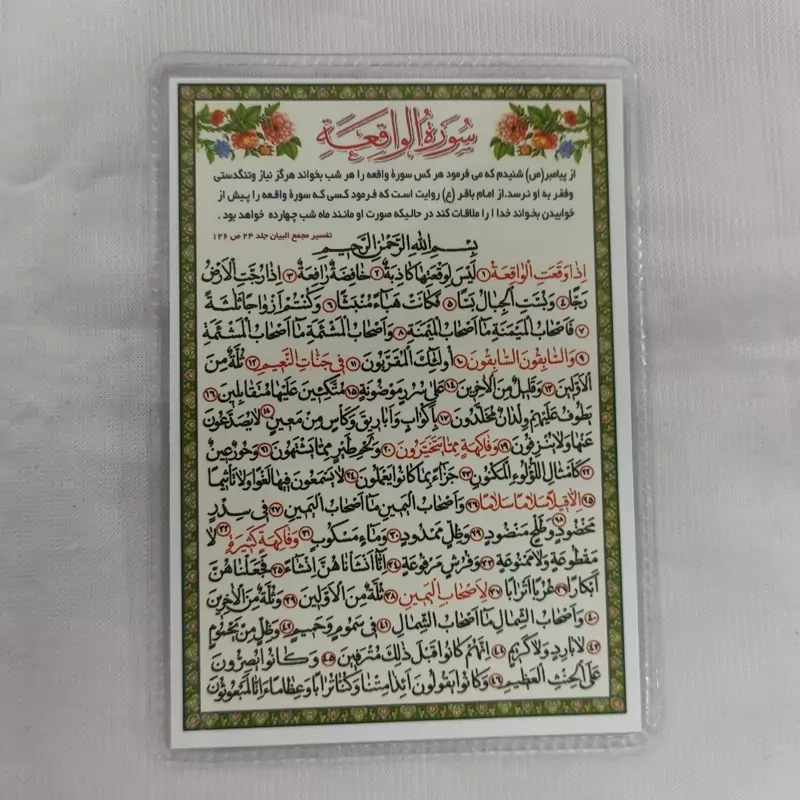 سورة الواقعة
از پیامبر(ص) شنیدم که می فرمود هر کس سورهٔ واقعه را هر شب بخواند هرگز نیاز وتنگدستی
وفقر به او نرسد.از امام باقر (ع) روایت است که فرمود کسی که سورهٔ واقعه را پیش از
خوابیدن بخواند خدا را ملاقات کند در حالیکه صورت او مانند ماه شب چهارده خواهد بود .
تفسیر مجمع البیان جلد ۲۴ ص ۱۲۶
بِسْمِ اللهِ الرَّحْمٰنِ الرَّحِيمِ
اِذَا وَقَعَتِ الْوَاقِعَةُ ۱ لَيْسَ لِوَقْعَتِهَا كَاذِبَةٌ ۲ خَافِضَةٌ رَافِعَةٌ ۳ اِذَا رُجَّتِ الْاَرْضُ
رَجًّا ۴ وَبُسَّتِ الْجِبَالُ بَسًّا ۵ فَكَانَتْ هَبَاءً مُنْبَثًّا ۶ وَكُنْتُمْ اَزْوَاجًا ثَلٰثَةً
۷ فَاَصْحَابُ الْمَيْمَنَةِ مَا اَصْحَابُ الْمَيْمَنَةِ ۸ وَاَصْحَابُ الْمَشْئَمَةِ مَا اَصْحَابُ الْمَشْئَمَةِ
۹ وَالسَّابِقُونَ السَّابِقُونَ ۱۰ اُولٰئِكَ الْمُقَرَّبُونَ ۱۱ فِي جَنَّاتِ النَّعِيمِ ۱۲ ثُلَّةٌ مِنَ
الْاَوَّلِينَ ۱۳ وَقَلِيلٌ مِنَ الْاٰخِرِينَ ۱۴ عَلٰى سُرُرٍ مَوْضُونَةٍ ۱۵ مُتَّكِئِينَ عَلَيْهَا مُتَقَابِلِينَ ۱۶
يَطُوفُ عَلَيْهِمْ وِلْدَانٌ مُخَلَّدُونَ ۱۷ بِاَكْوَابٍ وَاَبَارِيقَ وَكَأْسٍ مِنْ مَعِينٍ ۱۸ لَا يُصَدَّعُونَ
عَنْهَا وَلَا يُنْزِفُونَ ۱۹ وَفَاكِهَةٍ مِمَّا يَتَخَيَّرُونَ ۲۰ وَلَحْمِ طَيْرٍ مِمَّا يَشْتَهُونَ ۲۱ وَحُورٌ عِينٌ
۲۲ كَاَمْثَالِ اللُّؤْلُؤِ الْمَكْنُونِ ۲۳ جَزَاءً بِمَا كَانُوا يَعْمَلُونَ ۲۴ لَا يَسْمَعُونَ فِيهَا لَغْوًا وَلَا تَأْثِيمًا
۲۵ اِلَّا قِيلًا سَلَامًا سَلَامًا ۲۶ وَاَصْحَابُ الْيَمِينِ مَا اَصْحَابُ الْيَمِينِ ۲۷ فِي سِدْرٍ
مَخْضُودٍ ۲۸ وَطَلْحٍ مَنْضُودٍ ۲۹ وَظِلٍّ مَمْدُودٍ ۳۰ وَمَاءٍ مَسْكُوبٍ ۳۱ وَفَاكِهَةٍ كَثِيرَةٍ ۳۲ لَا
مَقْطُوعَةٍ وَلَا مَمْنُوعَةٍ ۳۳ وَفُرُشٍ مَرْفُوعَةٍ ۳۴ اِنَّا اَنْشَأْنَاهُنَّ اِنْشَاءً ۳۵ فَجَعَلْنَاهُنَّ
اَبْكَارًا ۳۶ عُرُبًا اَتْرَابًا ۳۷ لِاَصْحَابِ الْيَمِينِ ۳۸ ثُلَّةٌ مِنَ الْاَوَّلِينَ ۳۹ وَثُلَّةٌ مِنَ الْاٰخِرِينَ
۴۰ وَاَصْحَابُ الشِّمَالِ مَا اَصْحَابُ الشِّمَالِ ۴۱ فِي سَمُومٍ وَحَمِيمٍ ۴۲ وَظِلٍّ مِنْ يَحْمُومٍ
۴۳ لَا بَارِدٍ وَلَا كَرِيمٍ ۴۴ اِنَّهُمْ كَانُوا قَبْلَ ذٰلِكَ مُتْرَفِينَ ۴۵ وَكَانُوا يُصِرُّونَ
عَلَى الْحِنْثِ الْعَظِيمِ ۴۶ وَكَانُوا يَقُولُونَ اَئِذَا مِتْنَا وَكُنَّا تُرَابًا وَعِظَامًا ءَاِنَّا لَمَبْعُوثُونَ